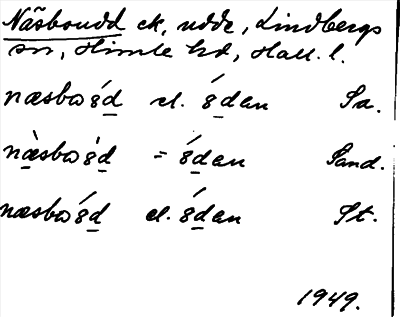 Näsboudd ek, udde, Lindbergs
sn, Himle hd, Hall. l.
næsbωȣ́d el. ȣ́dan Sa.
næ̀sbωȣ̀d = ȣ́dan Sand.
næsbωȣ́d el. ȣ́dan St.
1949.